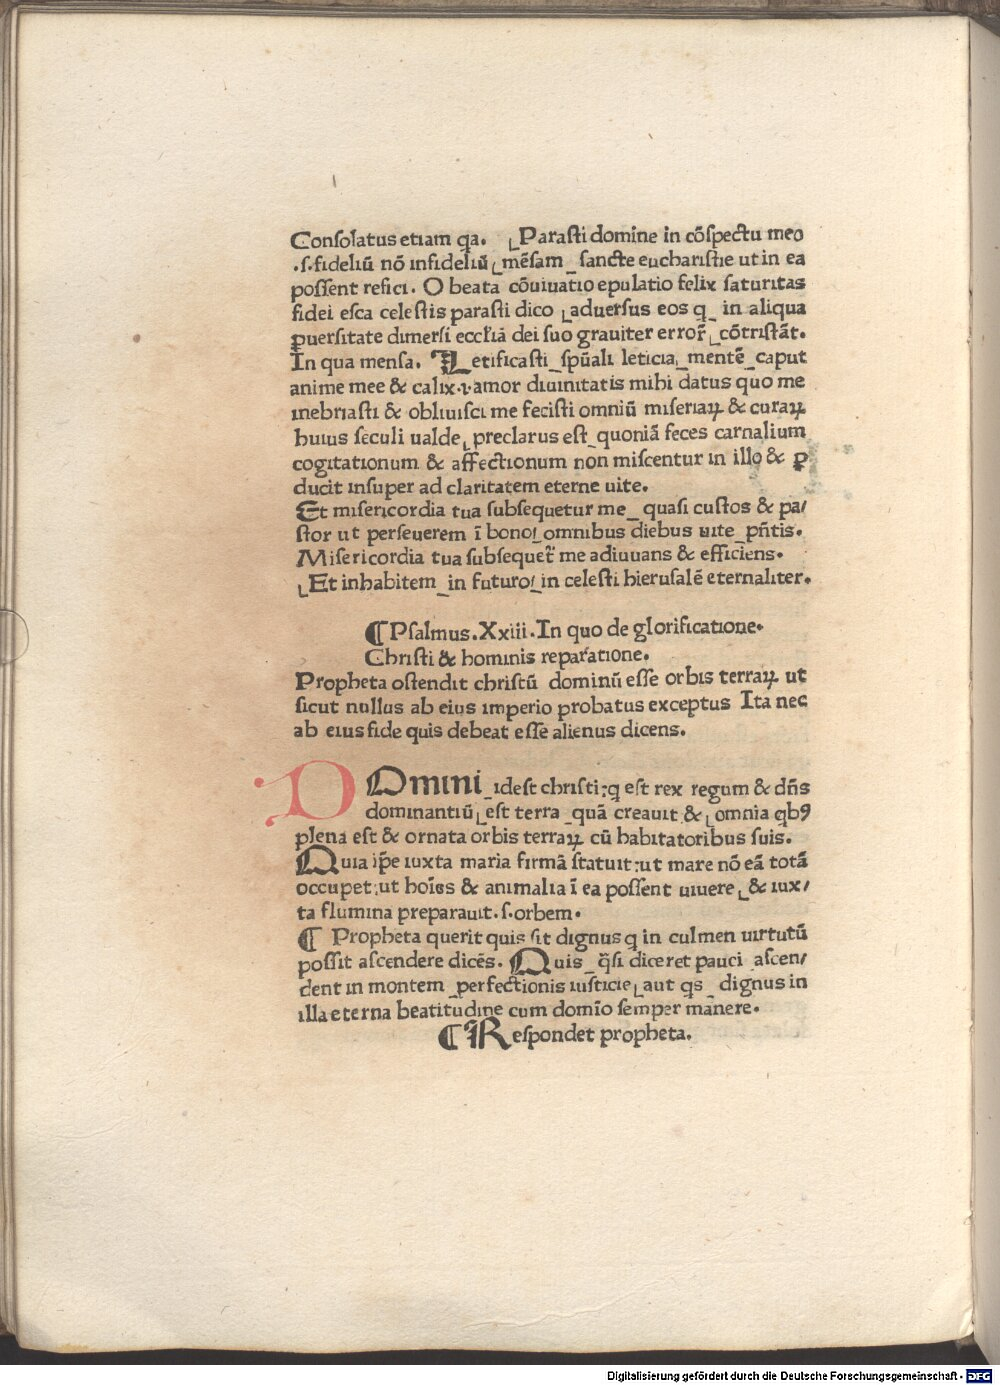 Consolatus etiam qa. Parasti domine in cōspectu meo
.s. fideliū nō infideliū mēsam sancte eucharistie ut in ea
possent refici. O beata cōuiuatio epulatio felix saturitas
fidei esca celestis parasti dico aduersus eos q in aliqua
ꝑuersitate dimersi eccłiā dei suo grauiter error̄ cōtristāt.
In qua mensa. Letificasti spūali leticia mentē caput
anime mee & calix .i. amor diuinitatis mihi datus quo me
inebriasti & obliuisci me fecisti omniū miseriaꝝ & curaꝝ
huius seculi ualde preclarus est quoniā feces carnalium
cogitationum & affectionum non miscentur in illo & ꝑ
ducit insuper ad claritatem eterne uite.
Et misericordia tua subsequetur me quasi custos & pa/
stor ut perseuerem ī bono omnibus diebus uite pn̄tis.
Misericordia tua subsequet̄ me adiuuans & efficiens.
Et inhabitem in futuro in celesti hierusalē eternaliter.
¶ Psalmus. Xxiii. In quo de glorificatione.
Christi & hominis reparatione.
Propheta ostendit christū dominū esse orbis terraꝝ ut
sicut nullus ab eius imperio probatus exceptus Ita nec
ab eius fide quis debeat esse alienus dicens.
DOmini idest christi: q est rex regum & dn̄s
dominantiū est terra quā creauit & omnia qbꝰ
plena est & ornata orbis terraꝝ cū habitatoribus suis.
Quia ip̄e iuxta maria firmā statuit: ut mare nō eā totā
occupet: ut hoīes & animalia ī ea possent uiuere & iux/
ta flumina preparauit. s. orbem.
¶ Propheta querit quis sit dignus q in culmen uirtutū
possit ascendere dicēs. Quis q̄si diceret pauci ascen/
dent in montem perfectionis iusticie aut qs dignus in
illa eterna beatitudine cum domīo semper manere.
¶ Respondet propheta.
Digitalisierung gefördert durch die Deutsche Forschungsgemeinschaft - DFG